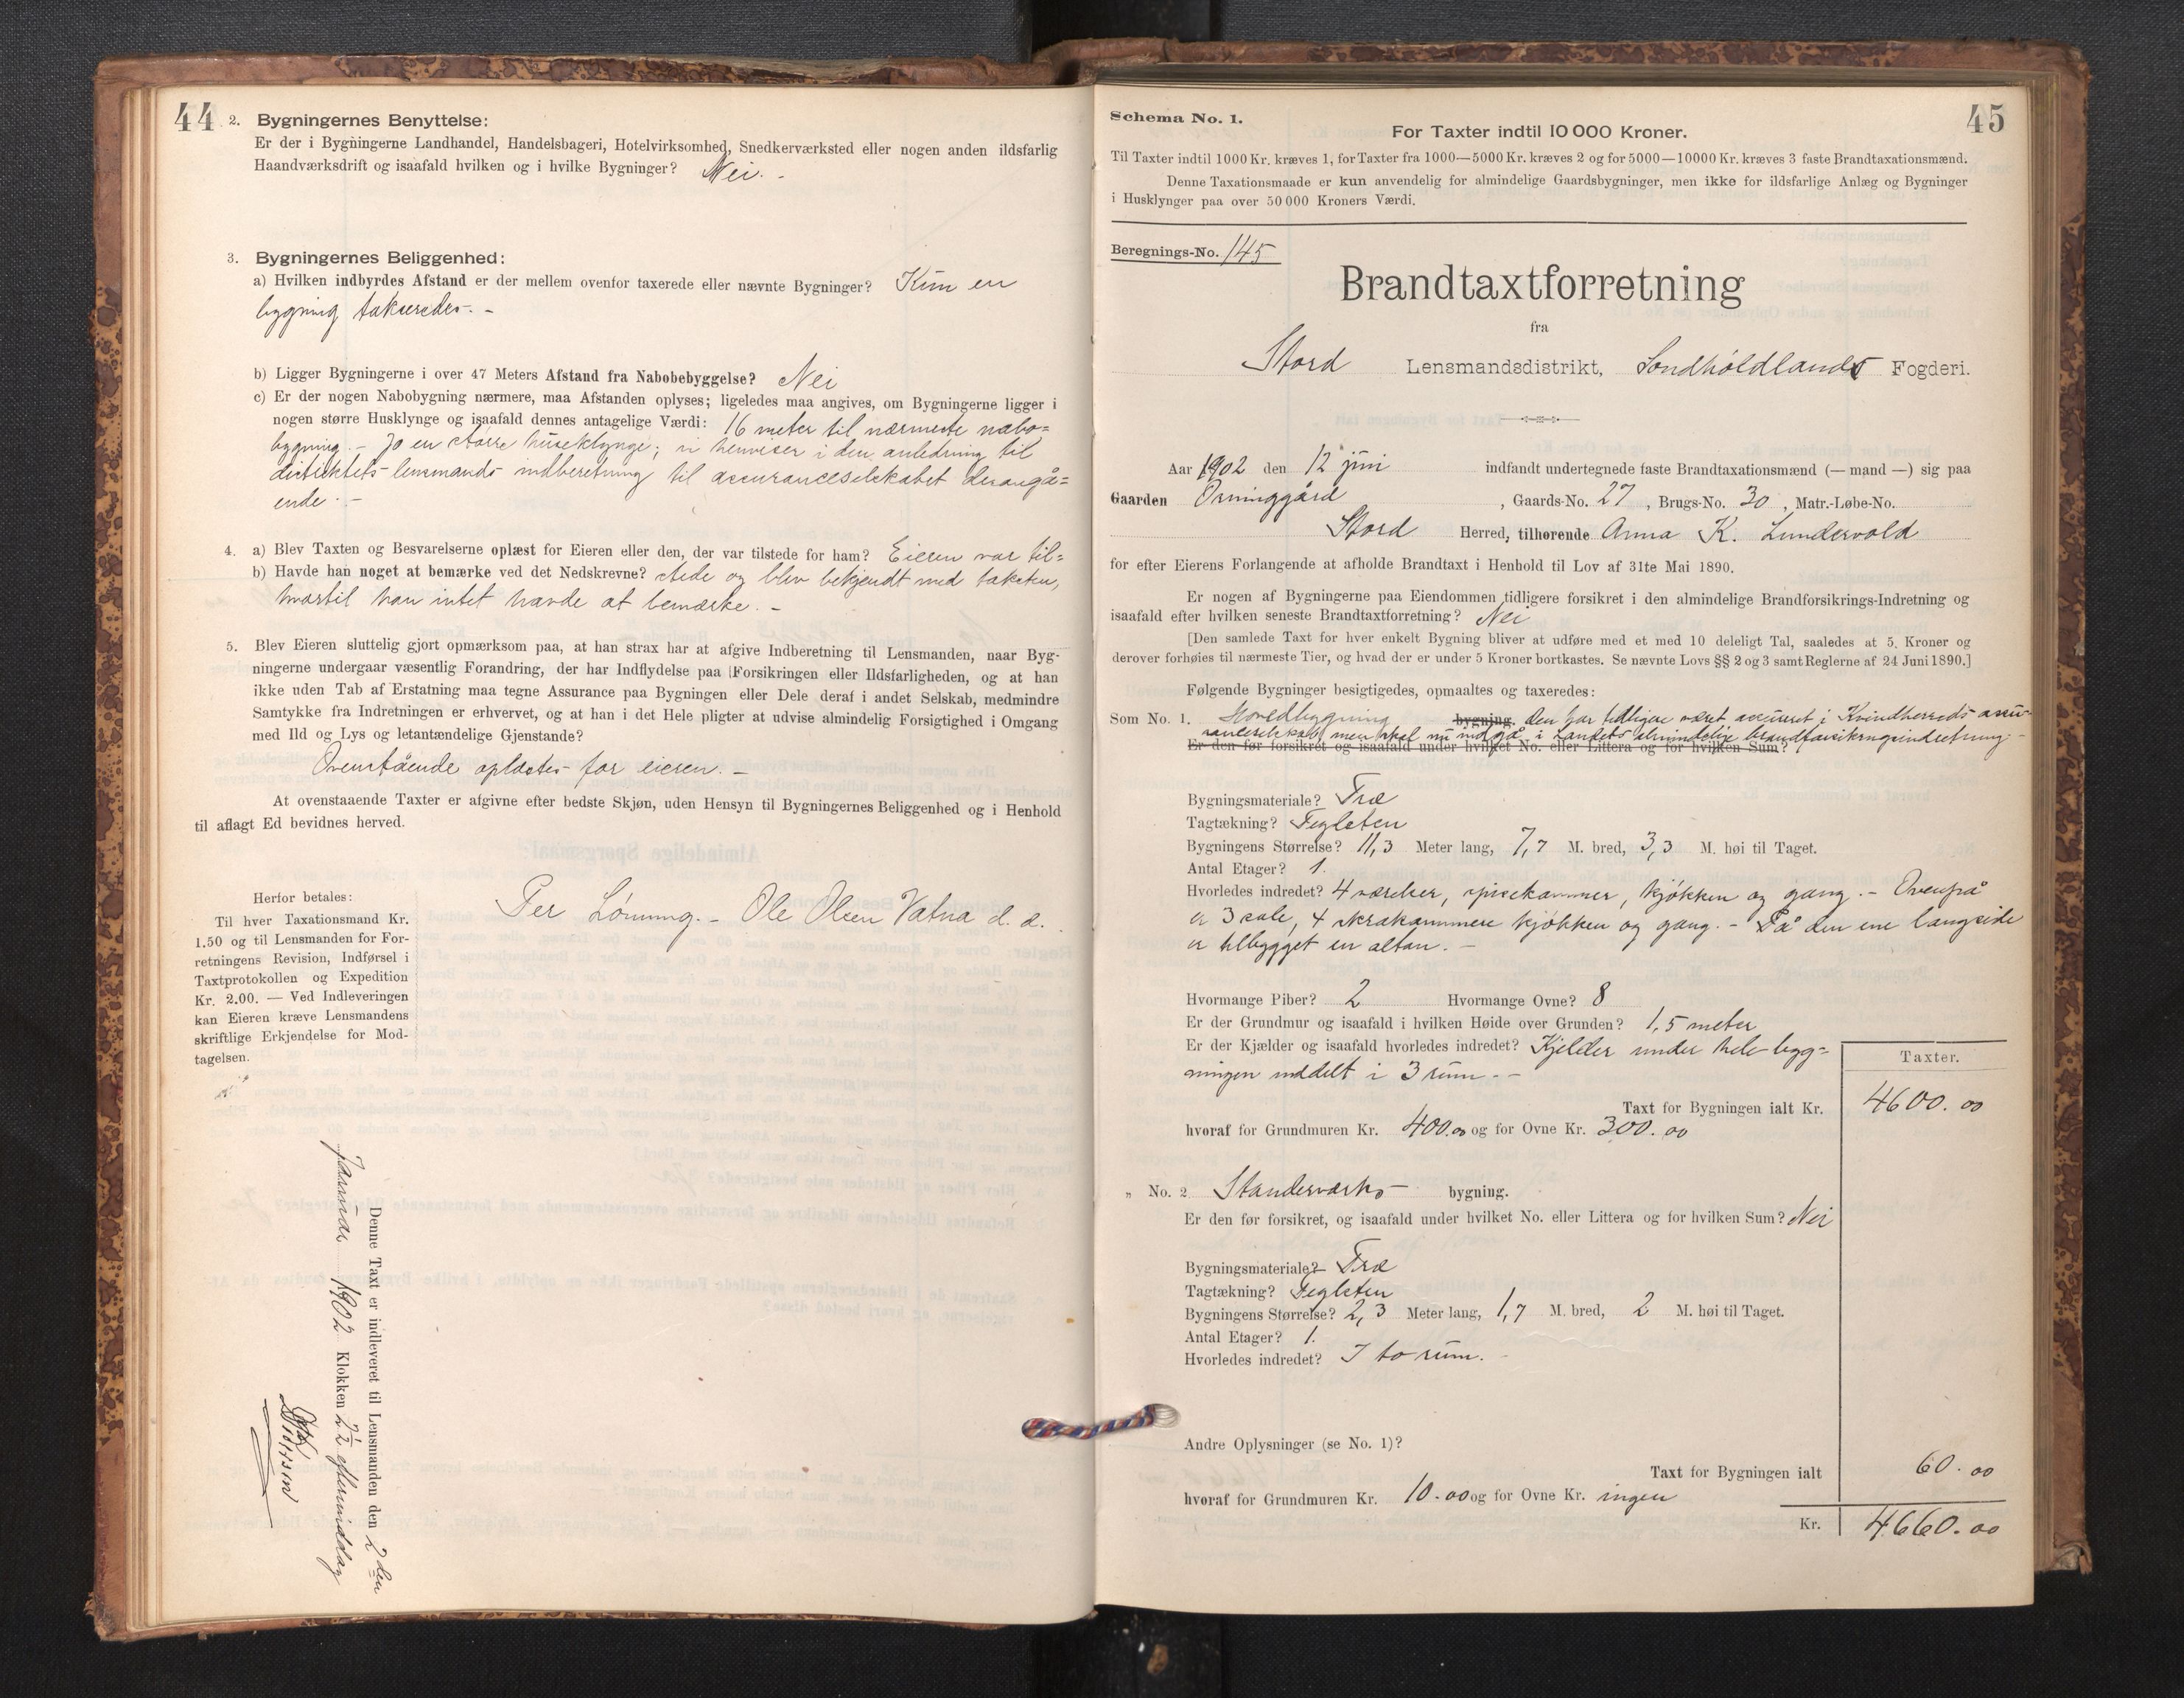 44
2. Bygningernes Benyttelse:
Er der i Bygningerne Landhandel, Handelsbageri, Hotelvirksomhed, Snedkerværksted eller nogen anden ildsfarlig
Haandværksdrift og isaafald hvilken og i hvilke Bygninger? Nei. -
3. Bygningernes Beliggenhed:
a) Hvilken indbyrdes Afstand er der mellem ovenfor taxerede eller nævnte Bygninger? Kun en
bygning takseredes. -
b) Ligger Bygningerne i over 47 Meters Afstand fra Nabobebyggelse? Nei
c) Er der nogen Nabobygning nærmere, maa Afstanden oplyses; ligeledes maa angives, om Bygningerne ligger i
nogen større Husklynge og isaafald dennes antagelige Værdi: 16 meter til nærmeste nabo=
bygning. - Jo en større huseklynge; vi henviser i den anledning til
distriktets lensmands indberetning til assuranceselskabet derangå=
ende. -
4. a) Blev Taxten og Besvarelserne oplæst for Eieren eller den, der var tilstede for ham? Eieren var til=
b) Havde han noget at bemærke ved det Nedskrevne? stede og blev bekjendt med taksten,
hvortil han intet havde at bemærke. -
5. Blev Eieren sluttelig gjort opmærksom paa, at han strax har at afgive Indberetning til Lensmanden, naar Byg-
ningerne undergaar væsentlig Forandring, der har Indflydelse paa Forsikringen eller Ildsfarligheden, og at han
ikke uden Tab af Erstatning maa tegne Assurance paa Bygningen eller Dele deraf i andet Selskab, medmindre
Samtykke fra Indretningen er erhvervet, og at han i det Hele pligter at udvise almindelig Forsigtighed i Omgang
med Ild og Lys og letantændelige Gjenstande?
Ovenstående oplæstes for eieren. -
At ovenstaaende Taxter er afgivne efter bedste Skjøn, uden Hensyn til Bygningernes Beliggenhed og i Henhold
til aflagt Ed bevidnes herved.
Herfor betales:
Til hver Taxationsmand Kr.
1.50 og til Lensmanden for For-
retningens Revision, Indførsel i
Taxtprotokollen og Expedition
Kr. 2.00. — Ved Indleveringen
kan Eieren kræve Lensmandens
skriftlige Erkjendelse for Mod-
tagelsen.
Per Lønning. - Ole Olsen Vatna d. a.
Denne Taxt er indleveret til Lensmanden den 2 den
Januar 1902 Klokken 2½ eftermiddag
45
Schema No. 1.
For Taxter indtil 10 000 Kroner.
Til Taxter indtil 1000 Kr. kræves 1, for Taxter fra 1000—5000 Kr. kræves 2 og for 5000—10000 Kr. kræves 3 faste Brandtaxationsmænd.
Denne Taxationsmaade er kun anvendelig for almindelige Gaardsbygninger, men ikke for ildsfarlige Anlæg og Bygninger
i Husklynger paa over 50 000 Kroners Værdi.
Beregnings-No. 145
Brandtaxtforretning
fra
Stord Lensmandsdistrikt, Søndhôldlands Fogderi.
Aar 1902 den 12 juni indfandt undertegnede faste Brandtaxationsmænd (— mand —) sig paa
Gaarden Orninggård, Gaards-No. 27, Brugs-No. 30, Matr.-Løbe-No.
Stord Herred, tilhørende Anna K. Lundervold
for efter Eierens Forlangende at afholde Brandtaxt i Henhold til Lov af 31te Mai 1890.
Er nogen af Bygningerne paa Eiendommen tidligere forsikret i den almindelige Brandforsikrings-Indretning og
isaafald efter hvilken seneste Brandtaxtforretning? Nei
[Den samlede Taxt for hver enkelt Bygning bliver at udføre med et med 10 deleligt Tal, saaledes at 5 Kroner og
derover forhøies til nærmeste Tier, og hvad der er under 5 Kroner bortkastes. Se nævnte Lovs §§ 2 og 3 samt Reglerne af 24 Juni 1890.]
Følgende Bygninger besigtigedes, opmaaltes og taxeredes:
Som No. 1. Hovedbygning bygning. Den har tidligere været assureret i Kvindherreds assu-
ranceselskab, men skal nu indgå i Landets almindelige brandforsikringsindretning. -
Er den før forsikret og isaafald under hvilket No. eller Littera og for hvilken Sum?
Bygningsmateriale? Træ
Tagtækning? Teglsten
Bygningens Størrelse? 11,3 Meter lang, 7,7 M. bred, 3,3 M. høi til Taget.
Antal Etager? 1.
Hvorledes indredet? 4 værelser, spisekammer, kjøkken og gang. - Ovenpå
er 3 sale, 4 skråkammere kjøkken og gang. - På den ene langside
er tilbygget en altan. -
Hvormange Piber? 2 Hvormange Ovne? 8
Er der Grundmur og isaafald i hvilken Høide over Grunden? 1,5 meter
Er der Kjælder og isaafald hvorledes indredet? Kjelder under hele byg=
ningen inddelt i 3 rum. -
Taxter.
Taxt for Bygningen ialt Kr. 4600.00
hvoraf for Grundmuren Kr. 400.00 og for Ovne Kr. 300.00
„ No. 2 Standerværks bygning.
Er den før forsikret, og isaafald under hvilket No. eller Littera og for hvilken Sum? Nei
Bygningsmateriale? Træ
Tagtækning? Teglsten
Bygningens Størrelse? 2,3 Meter lang, 1,7 M. bred, 2 M. høi til Taget.
Antal Etager? 1.
Hvorledes indredet? I to rum.
Andre Oplysninger (se No. 1)?
Taxt for Bygningen ialt 60.00
hvoraf for Grundmuren Kr. 10.00 og for Ovne Kr. ingen
Kr. 4660.00